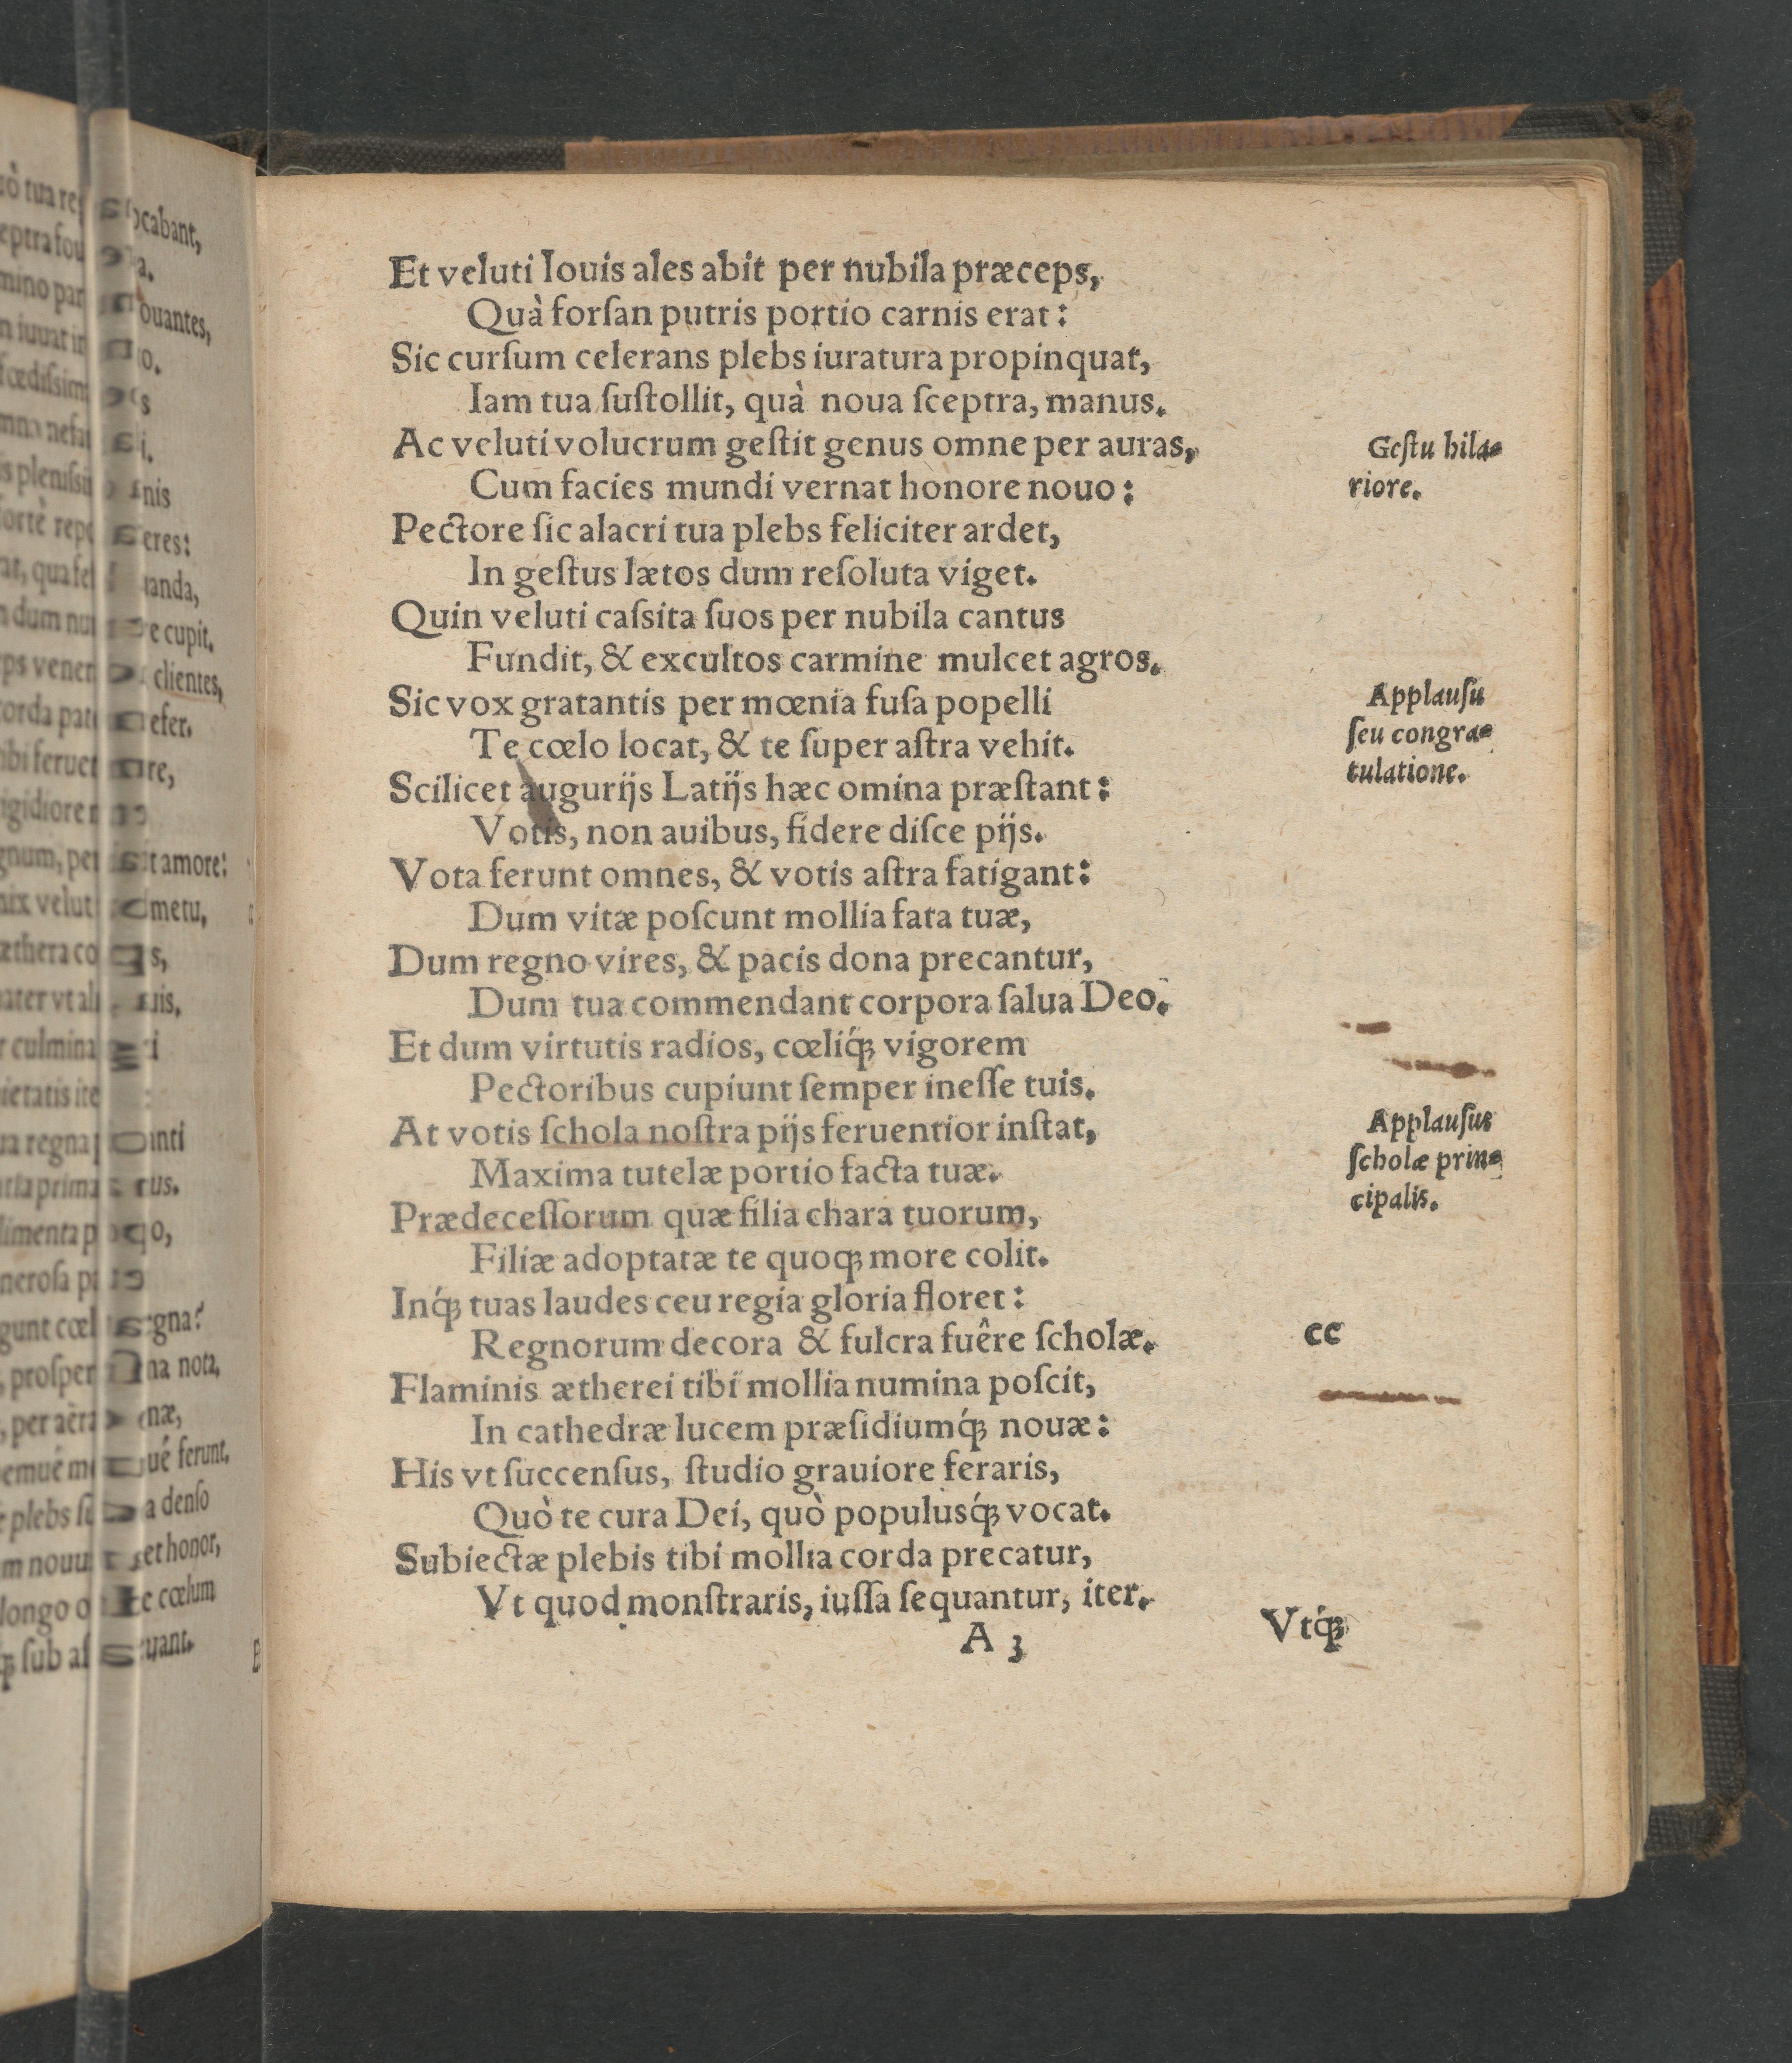 Et veluti Iouis ales abit per nubila præceps,
Quà forſan putris portio carnis erat:
Sic curſum celerans plebs iuratura propinquat,
Iam tua ſuſtollit, quà noua ſceptra, manus.
Ac veluti volucrum geſtit genus omne per auras,
Geſtu hila-
Cum facies mundi vernat honore nouo:
riore.
Pectore ſic alacri tua plebs feliciter ardet,
In geſtus lætos dum reſoluta viget.
Quin veluti caſsita ſuos per nubila cantus
Fundit, & excultos carmine mulcet agros.
Sic vox gratantis per mœnia fuſa popelli
Applauſu
Te cœlo locat, & te ſuper aſtra vehit.
ſeu congra-
tulatione.
Scilicet augurijs Latijs hæc omina præſtant:
Votis, non auibus, fidere diſce pijs.
Vota ferunt omnes, & votis aſtra fatigant:
Dum vitæ poſcunt mollia fata tuæ,
Dum regno vires, & pacis dona precantur,
Dum tua commendant corpora ſalua Deo.
Et dum virtutis radios, cœliq́; vigorem
Pectoribus cupiunt ſemper ineſſe tuis.
At votis ſchola noſtra pijs feruentior inſtat,
Applauſus
Maxima tutelæ portio facta tuæ.
ſcholæ prin-
cipalis.
Prædeceſſorum quæ filia chara tuorum,
Filiæ adoptatæ te quoq; more colit.
Inq́; tuas laudes ceu regia gloria floret:
Regnorum decora & fulcra fuêre ſcholæ.
cc
Flaminis ætherei tibi mollia numina poſcit,
In cathedræ lucem præſidiumq́; nouæ:
His vt ſuccenſus, ſtudio grauiore feraris,
Quò te cura Dei, quò populusq́; vocat.
Subiectæ plebis tibi mollia corda precatur,
Vt quod monſtraris, iuſſa ſequantur, iter.
A 3
Vtq́;